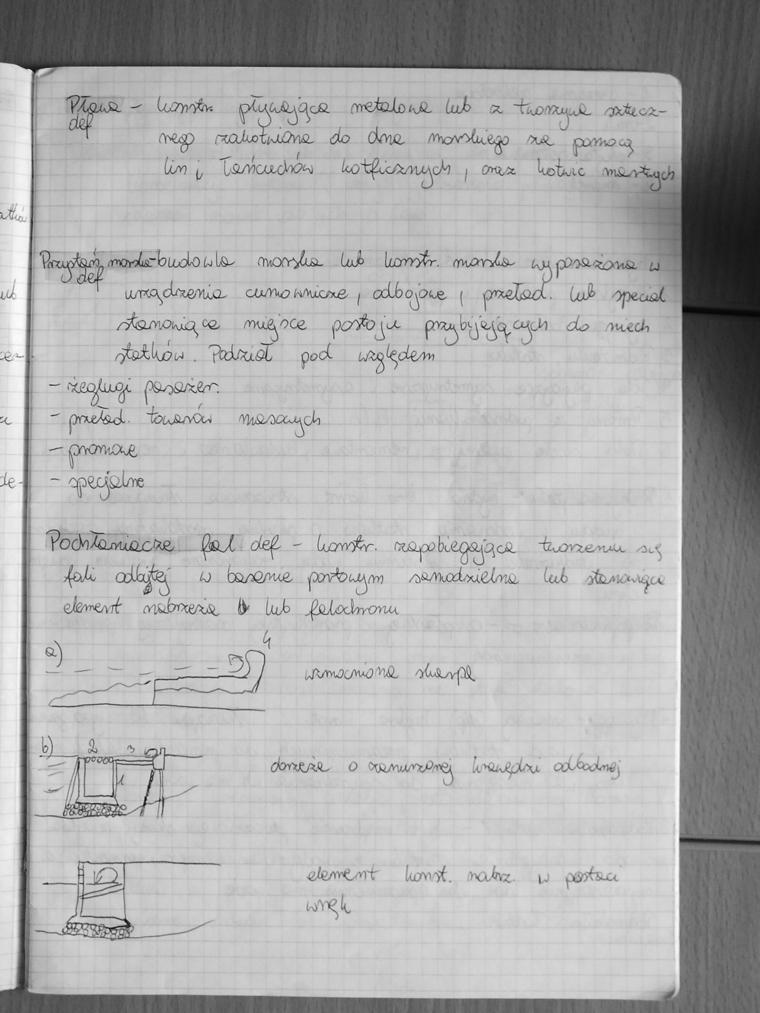 Pława – konstr. pływająca metalowa lub z tworzywa sztucz-
def
nego zakotwiona do dna morskiego za pomocą
lin i łańcuchów kotficznych, oraz kotwic martwych
Przystań morska – budowla morska lub konstr. morska wyposażona w
def
urządzenia cumownicze, odbojowe, przeład. lub specjal
stanowiące miejsce postoju przybijających do niech
statków. Podział pod względem
– żeglugi pasażer.
– przeład. towarów masowych
– promowe
– specjalne
Pochłaniacze fal def – konstr. zapobiegająca tworzeniu się
fali odbitej w basenie portowym samodzielna lub stanowiąca
element nabrzeża lub falochronu
a)
4
wzmocniona skarpa
b)
2 3
1
o zanurzonej krawędzi
element konst. nabrz. w postaci
wnęk